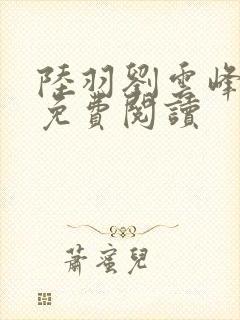 陸羽劉雲峰
免費閱讀
蕭蜜兒